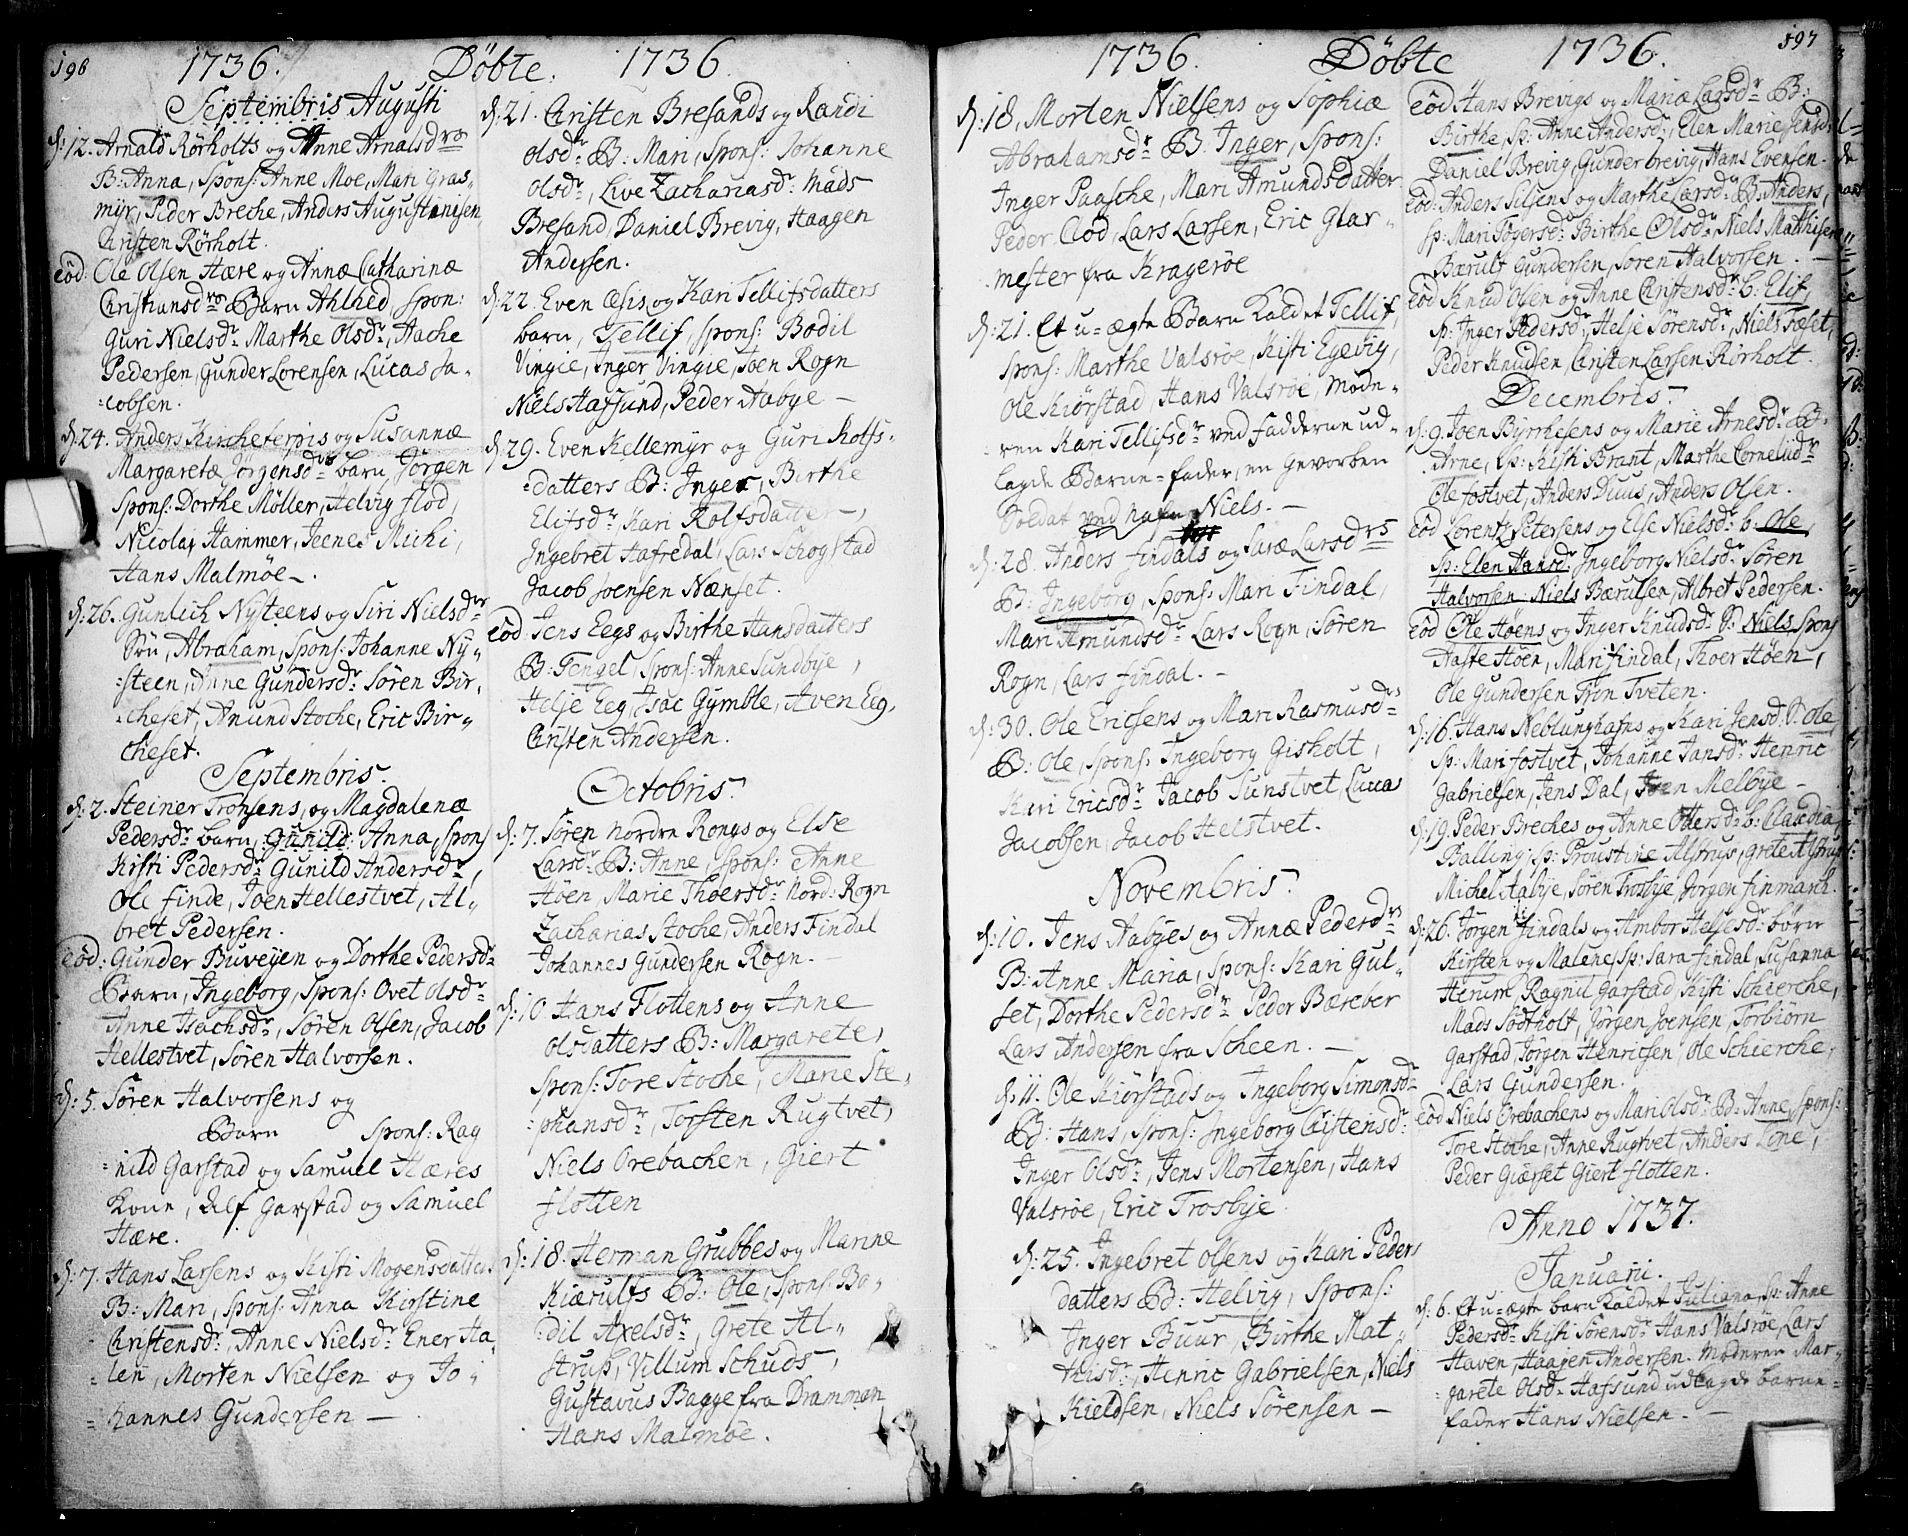 196 1736. Döbte. 1736.
Septembris Augusti
d: 12. Arnald Rörholts og Anne Arnalsdrs
B: Anna, Spons: Anne Moe, Mari Gras„
myr, Peder Breche, Anders Augustinisen,
Christen Rörholt.
eôd: Ole Olsen Hære og Annæ Catharinæ
Christiansdrs Barn Ahlhed, Spon:
Guri Nielsdr Marthe Olsdr, Aache
Pedersen, Gunder Lorensen, Lucas Ja„
cobsen.
d: 24. Anders Kircheterpis og Susannæ
Margaretæ Jörgensdrs barn Jörgen
Spons: Dorthe Möller, Helvig flod,
Nicolay Hammer, Jeenes Michi,
Hans Malmöe.
d: 26. Gunlich Nÿsteens og Siri Nielsdr
Sön, Abraham, Spons: Johanne Ny„
steen, Anne Gundersdr Sören Bir„
cheset, Amund Stoche, Eric Bir„
cheset.
Septembris.
d: 2. Steiner Tronsens, og Magdalenæ
Pedersdr barn, Gunild: Anna, Spons
Kisti Pedersdr Gunild Andersdr,
Ole finde, Joen Hellestvet, Al„
bret Pedersen.
eôd: Gunder Buveÿen og Dorthe Pedersdr
Barn, Ingeborg, Spons: Ovet Olsdr
Anne Isachsdr, Sören Olsen, Jacob
Hellestvet, Sören Halvorsen.
d: 5. Sören Halvorsens og
Barn Spons: Rag
nild Garstad og Samuel Hæres
Kone, Rolf Garstad og Samuel
Hære.
d: 7. Hans Larsens og Kisti Mogensdatters
B: Mari, Spons: Anna Kirstine
Christensdr, Anne Nielsdr Ener Ha„
len, Morten Nielsen og Jo„
hannes Gundersen —
d: 21. Christen Bresands og Randi
Olsdr B: Mari, Spons: Johanne
Olsdr, Live Zachariasdr Mads
Bresand, Daniel Brevig, Haagen
Andersen.
d: 22. Even Æsis og Kari Tellifsdatters
barn, Tellif, Spons: Bodil
Vingie, Inger Vingie, Joen Rogn
Niels Hafsund, Peder Aabye —
d: 29. Even Kellemÿr og Guri Rolfs„
datters B: Inger, Birthe
Elifsdr, Kari Rolfsdatter,
Ingebret Hafredal, Lars Schogstad
Jacob Joensen Nænset.
eôd: Jens Eegs og Birthe Hansdatters
B: Tengel, Spons: Anne Sundbye,
Helje Eeg, Isac Gÿmble, Aven Eeg,
Christen Andersen.
Octobris.
d: 7. Sören nordre Rongs og Else
Larsdr B: Anne, Spons: Anne
Höen, Marie Thoersdr Nord: Rogn
Zacharias Stoche, Anders Findal
Johannes Gundersen Rogn. —
d: 10 Hans Flottens og Anne
Olsdatters B: Margarete,
Spons: Tore Stoche, Marie Ste„
phansdr, Torsten Rugtvet,
Niels Orebachen, Giert
flotten
d: 18. Herman Grubbes og Marine
Kiærulfs B: Ole, Spons: Bo„
dil Axelsdr, Grete Al„
strup, Villum Schuds,
Gustavus Bagge fra Drammen
Hans Malmöe.
1736. Döbte 1736. 197
d: 18. Morten Nielsens og Sophiæ
Abrahamsdr B: Inger, Spons:
Inger Paasche, Mari Amundsdatter
Peder Clod, Lars Larsen, Eric Glar„
mester fra Kragerøe
d: 21. Et u-ægte Barn kaldet Tellif,
Spons: Marthe Valsröe, Kisti Egevig,
Ole Kiörstad, Hans Valsröe, Mode„
ren Kari Tellifsdr ved fadderne ud„
lagde Barne-fader, en gevorben
Soldat ved nafn Niels. —
d: 28. Anders findals og Saræ Larsdrs
B: Ingeborg, Spons: Mari Findal,
Mari Amundsdr Lars Rogn, Sören
Rogn, Lars findal. —
d: 30. Ole Ericsens og Mari Rasmusdrs
B: Ole, Spons: Ingeborg Gisholt,
Kari Ericsdr Jacob Tunstvet, Lucas
Jacobsen, Jacob Helstvet.
Novembris.
d: 10. Jens Aabyes og Annæ Pedersdrs
B: Anne Maria, Spons: Kari Gul„
set, Dorthe Pedersdr Peder Bæreber
Lars Andersen fra Scheen. —
d: 11. Ole Kiörstads og Ingeborg Simonsdr
B: Hans, Spons: Ingeborg Christensdr
Inger Olsdr, Jens Mortensen, Hans
Valsröe, Eric Trosbÿe.
d: 25. Ingebret Olsens og Kari Peders
datters B: Helvig, Spons:
Inger Buur, Birthe Mat„
thisdr, Henric Gabrielsen, Niels
Kieldsen, Niels Sörensen —
eôd Hans Brevigs og Mariæ Larsdr B:
Birthe, Sp: Anne Andersdr, Elen Marie Jensdr
Daniel Brevig, Gunder brevig, Hans Evensen.
eôd: Anders Silsens og Marthe Larsdr B: Anders,
sp: Mari Tögersdr Birthe Olsdr, Niels Mathisen
Bærulf Gundersen, Sören Halvorsen. —
eôd Knud Olsen og Anne Christensdr b: Elif,
sp: Inger Pedersdr, Helje Sörensdr, Niels Fæset,
Peder Knudsen, Christen Larsen Rörholt.
Decembris.
d: 9. Joen Byrthesens og Marie Arnesdr B:
Arne, sp: Kisti Brant, Marthe Corneliidr
Ole fostvet, Anders Duus, Anders Olsen.
eôd Lorentz Petersens og Else Nielsdr b: Ole,
sp: Elen Hansdr Ingeborg Nielsdr Sören
Halvorsen Niels Bærulsen, Albret Pedersen.
eôd Ole Höens og Inger Knudsdr B: Niels, Spons
Aaste Höen, Mari findal, Thoer Höen,
Ole Gundersen Tron Tveten.
d: 16. Hans Neblunghafns og Kari Jensdr B: Ole
sp: Mari fostvet, Johanne Jansdr Henric
Gabrielsen, Jens Dal, Joen Melbÿe —
d: 19. Peder Breches og Anne Ottersdr b: Claudia
Balling, sp: Proustine Alstrup, Grete Alstrup
Michel Aabÿe, Sören Trosbÿe, Jörgen finmarck.
d: 26. Jörgen findals og Ambor Heljesdr börn
Kirsten og Malene, sp: Sara findal, Susanna
Herum, Ragnil Garstad, Kisti Schierche,
Mads Södtholt, Jörgen Joensen, Torbiörn
Garstad, Jörgen Henricsen, Ole Schierche,
Lars Gundersen.
eôd Niels Orebachens og Mari Olsdr B: Anne, Spons:
Tore Stoche, Anne Rugtvet, Anders Lone,
Peder Giærset Giert flotten.
Anno 1737.
Januarii.
d: 6. Et u-ægte barn kaldet Juliana, sp: Anne
Pedersdr Kisti Sörensdr Hans Valsröe, Lars
Haven, Haagen Andersen. Moderen Mar„
garete Olsdr Hafsund udlagde barne„
fader Hans Nielsen. —